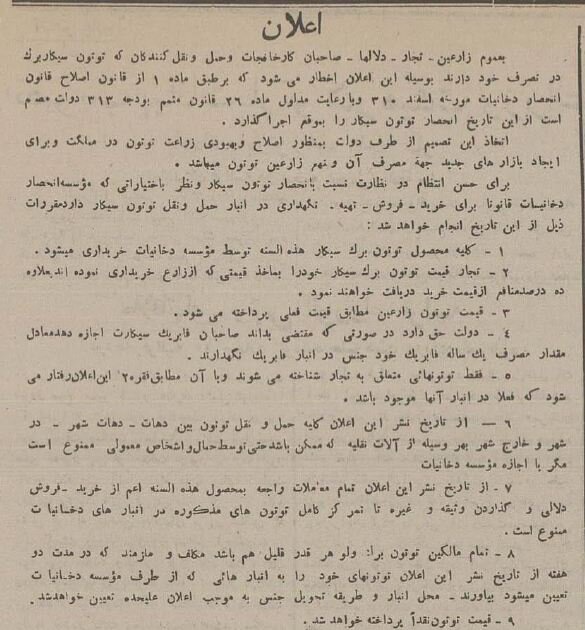 اعلان
بعموم زارعین - تجار - دلالها - صاحبان کارخانجات وحمل ونقل کنندگان که توتون سیکاربرك
در تصرف خود دارند بوسیله این اعلان اخطار می شود که برطبق ماده ۱ از قانون اصلاح قانون
انحصار دخانیات مورخه اسفند ۳۱۰ وبا رعایت مدلول ماده ۲۶ قانون متمم بودجه ۳۱۳ دولت مصمم
است از این تاریخ انحصار توتون سیکار را بموقع اجرا گذارد .
اتخاذ این تصمیم از طرف دولت بمنظور اصلاح وبهبودی زراعت توتون در مملکت وبرای
ایجاد بازار های جدید جهة مصرف آن و بنفع زارعین توتون میباشد .
برای حسن انتظام در نظارت نسبت بانحصار توتون سیکار ونظر باختیاراتی که مؤسسه انحصار
دخانیات قانونا برای خرید - فروش - تهیه - نگهداری در انبار حمل ونقل توتون سیکار دارد مقررات
ذیل از این تاریخ انجام خواهد شد :
۱ - کلیه محصول توتون برك سیکار هذه السنه توسط مؤسسه دخانیات خریداری میشود .
۲ - تجار قیمت توتون برك سیکار خودرا بماخذ قیمتی که اززارع خریداری نموده اند بعلاوه
ده درصد منافع ازقیمت خرید دریافت خواهند نمود .
۳ - قیمت توتون زارعین مطابق قیمت فعلی پرداخته می شود .
۴ - دولت حق دارد در صورتی که مقتضی بداند صاحبان فابریك سیکارت اجازه دهد معادل
مقدار مصرف یك ساله فابریك خود جنس در انبار فابریك نگهدارند .
۵ - فقط توتونهائی متعلق به تجار شناخته می شوند وبا آن مطابق فقره ۲ این اعلان رفتار می
شود که فعلا در انبار آنها موجود باشد .
۶ — از تاریخ نشر این اعلان کلیه حمل و نقل توتون بین دهات - دهات شهر - در
شهر و خارج شهر بهر وسیله از آلات نقلیه که ممکن باشد حتی توسط حمال و اشخاص معمولی ممنوع است
مگر با اجازه مؤسسه دخانیات
۷ - از تاریخ نشر این اعلان تمام معاملات راجعه بمحصول هذه السنه اعم از خرید - فروش
دلالی و گذاردن وثیقه و غیره تا تمرکز کامل توتون های مذکوره در انبار های دخانیات
ممنوع است .
۸ - تمام مالکین توتون برك ولو هر قدر قلیل هم باشد مکلف و ملزمند که در مدت دو
هفته از تاریخ نشر این اعلان توتونهای خود را به انبار هائی که از طرف مؤسسه دخانیات
تعیین میشود بیاورند - محل انبار و طریقه تحویل جنس به موجب اعلان علیحده تعیین خواهد شد .
۹ - قیمت توتون نقداً پرداخته خواهد شد .